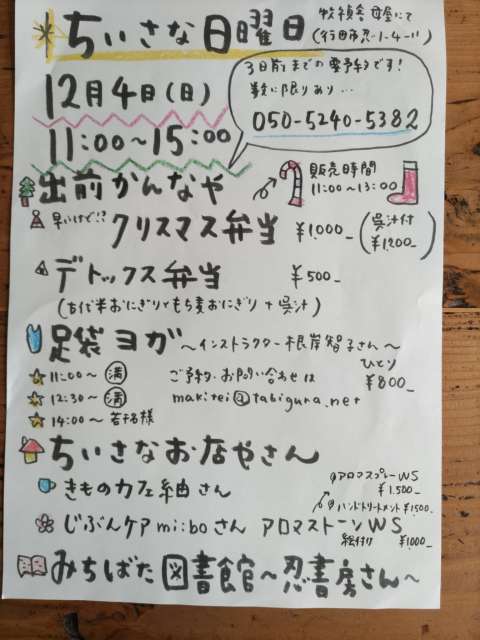 ちいさな日曜日
牧禎舎 母屋にて
(行田市忍1-4-11)
12月4日(日)
11:00〜15:00
3日前までの要予約です!
数に限りあり…
050-5240-5382
出前かんなや
販売時間
11:00〜13:00
早いけど!?
クリスマス弁当 ¥1,000-
(呉汁付
¥1,200-)
デトックス弁当 ¥500-
(古代米おにぎりともち麦おにぎり + 呉汁)
足袋ヨガ 〜インストラクター根岸智子さん〜
ひとり
¥800-
11:00〜 満
12:30〜 満
14:00〜 若干名様
ご予約・お問い合わせは
makitei@tabigura.net
ちいさなお店やさん
きものカフェ紬さん
アロマスプレーWS
¥1,500-
ハンドトリートメント ¥1500-
じぶんケア mi:boさん アロマストーンWS
絵付け ¥1,000-
みちばた図書館〜忍書房さん〜